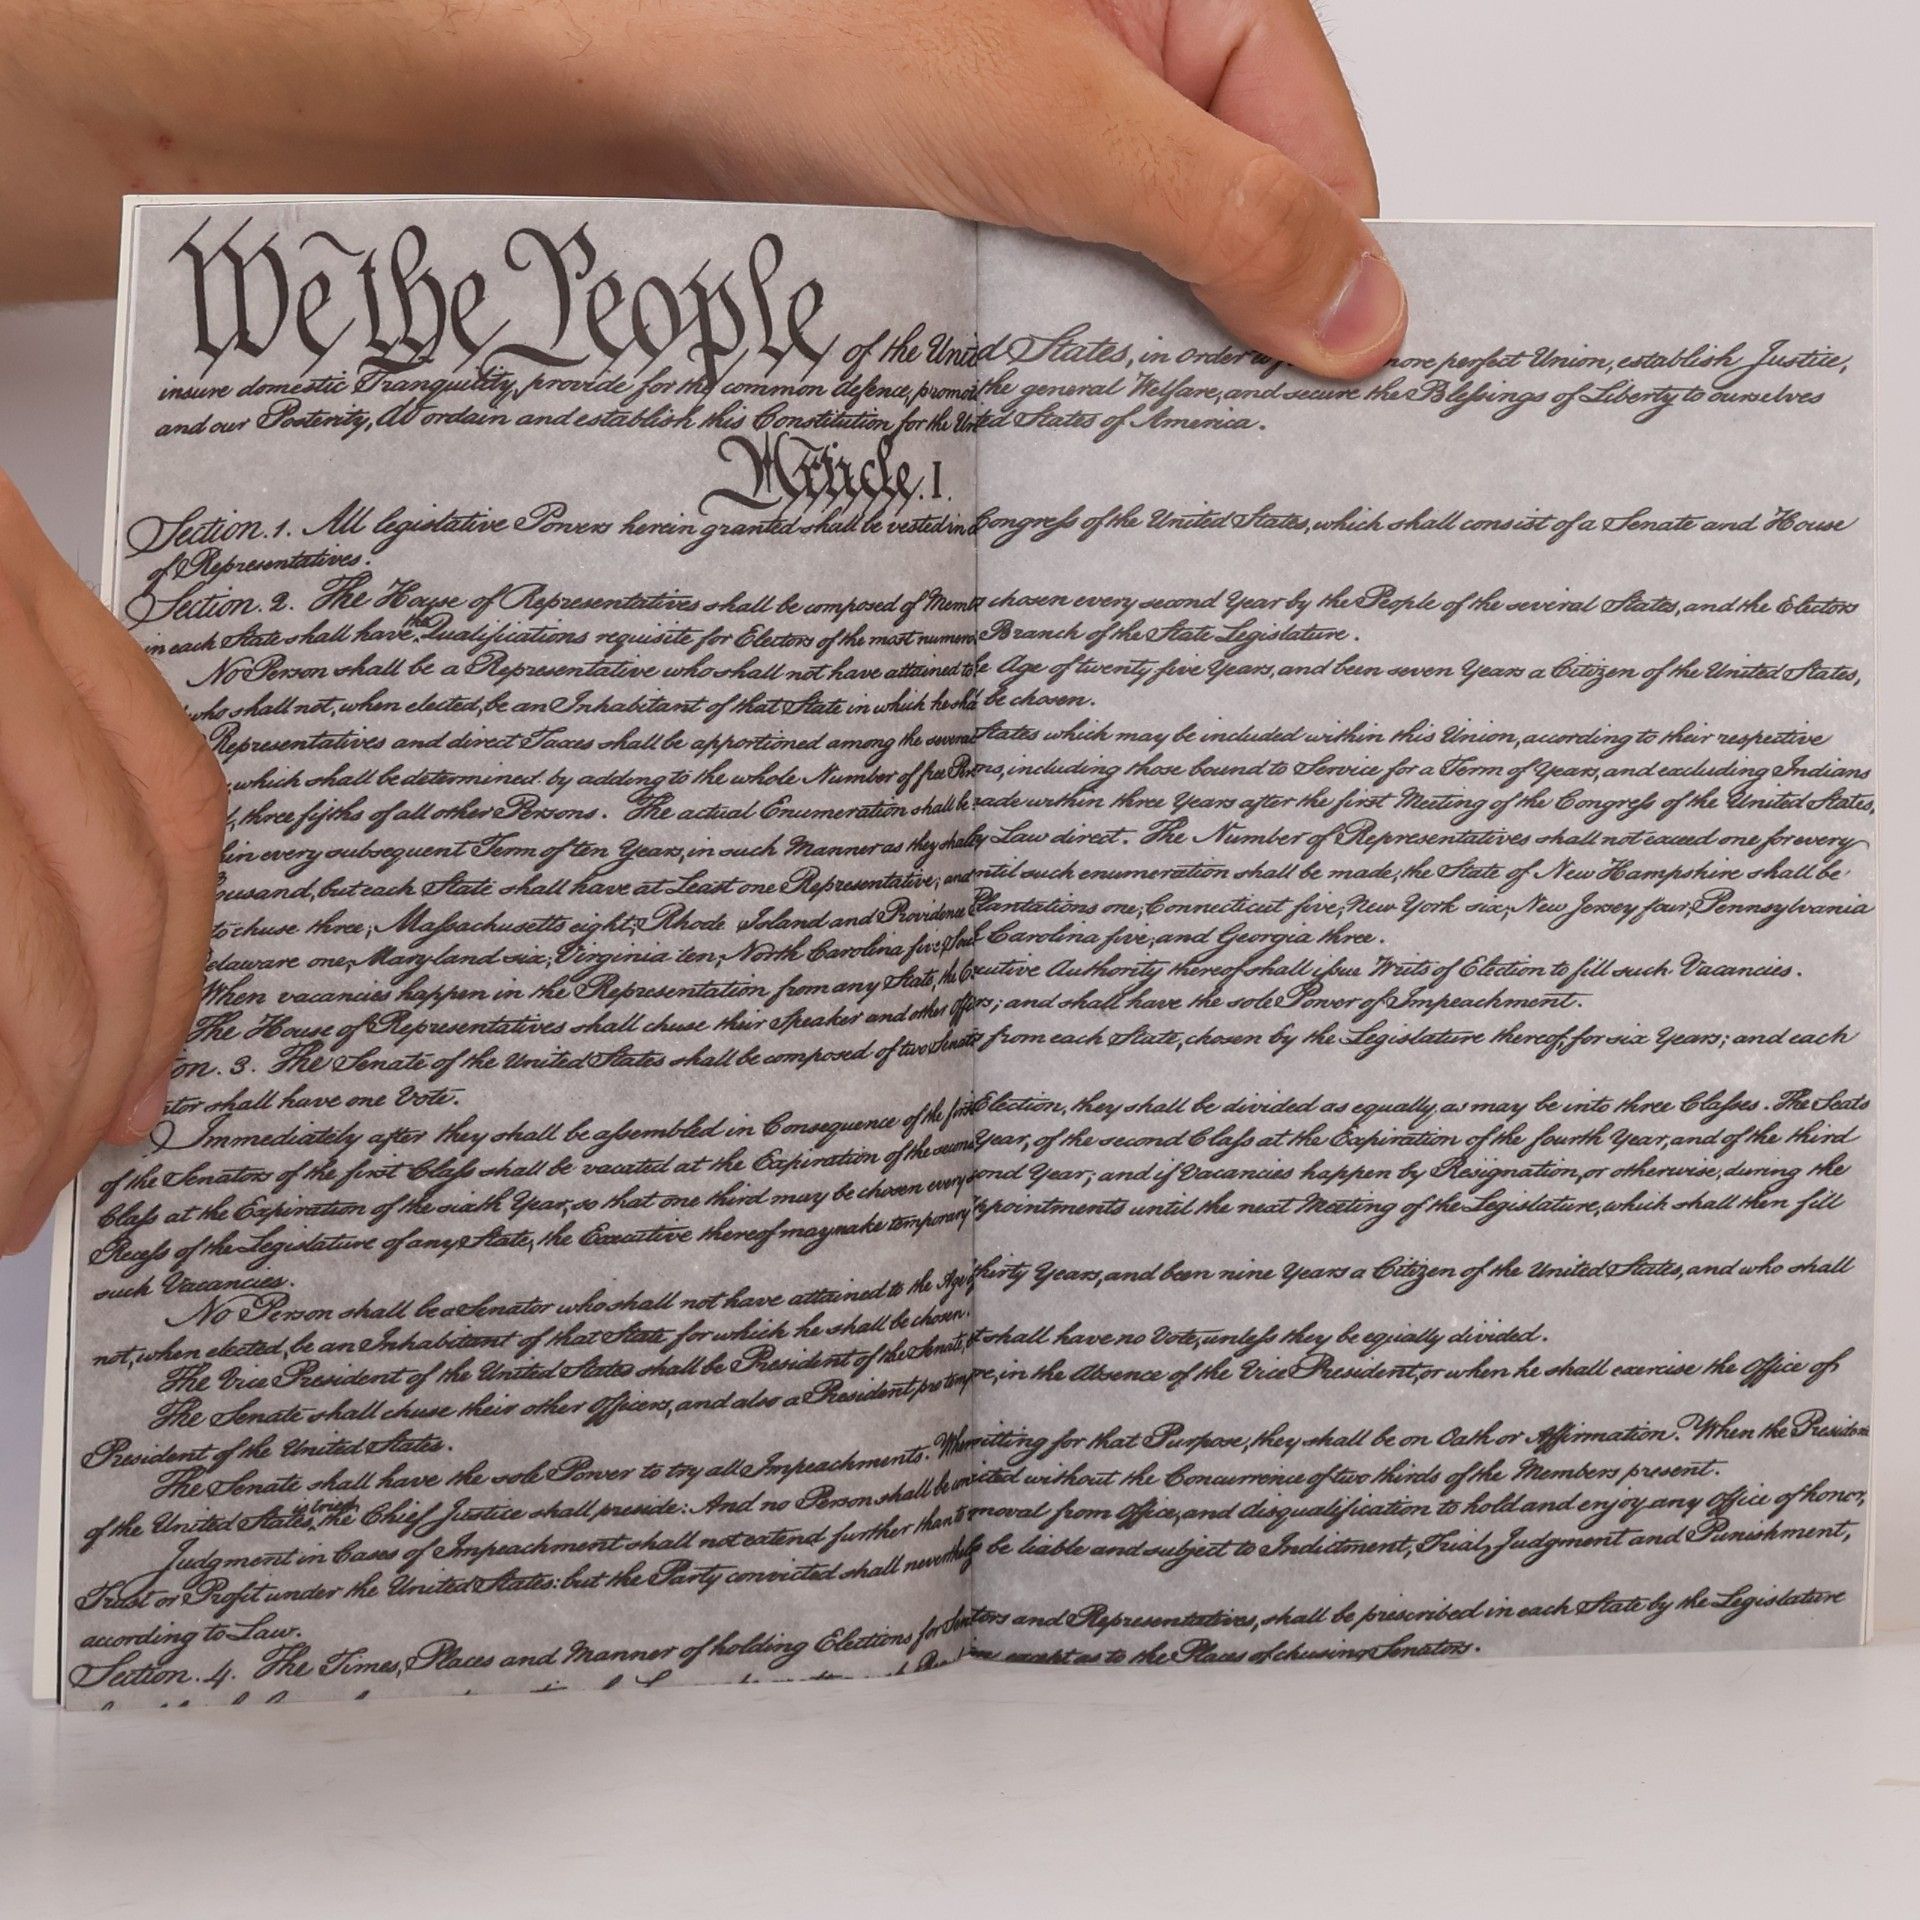 We the People of the United States, in Order more perfect Union, establish Justice,
insure domestic Tranquility, provide for the common defence, promote the general Welfare, and secure the Blessings of Liberty to ourselves
and our Posterity, do ordain and establish this Constitution for the United States of America.
Article. I.
Section. 1. All legislative Powers herein granted shall be vested in a Congress of the United States, which shall consist of a Senate and House
of Representatives.
Section. 2. The House of Representatives shall be composed of Members chosen every second Year by the People of the several States, and the Electors
in each State shall have the Qualifications requisite for Electors of the most numerous Branch of the State Legislature.
No Person shall be a Representative who shall not have attained to the Age of twenty five Years, and been seven Years a Citizen of the United States,
who shall not, when elected, be an Inhabitant of that State in which he shall be chosen.
Representatives and direct Taxes shall be apportioned among the several States which may be included within this Union, according to their respective
which shall be determined by adding to the whole Number of free Persons, including those bound to Service for a Term of Years, and excluding Indians
three fifths of all other Persons. The actual Enumeration shall be made within three Years after the first Meeting of the Congress of the United States,
every subsequent Term of ten Years, in such Manner as they shall by Law direct. The Number of Representatives shall not exceed one for every
but each State shall have at Least one Representative; and until such enumeration shall be made, the State of New Hampshire shall be
to chuse three, Massachusetts eight, Rhode Island and Providence Plantations one, Connecticut five, New York six, New Jersey four, Pennsylvania
one, Maryland six, Virginia ten, North Carolina five, South Carolina five, and Georgia three.
When vacancies happen in the Representation from any State, the Executive Authority thereof shall issue Writs of Election to fill such Vacancies.
The House of Representatives shall chuse their Speaker and other Officers; and shall have the sole Power of Impeachment.
3. The Senate of the United States shall be composed of two Senators from each State, chosen by the Legislature thereof, for six Years; and each
shall have one Vote.
Immediately after they shall be assembled in Consequence of the first Election, they shall be divided as equally as may be into three Classes. The Seats
of the Senators of the first Class shall be vacated at the Expiration of the second Year, of the second Class at the Expiration of the fourth Year, and of the third
Class at the Expiration of the sixth Year, so that one third may be chosen every second Year; and if Vacancies happen by Resignation, or otherwise, during the
Recess of the Legislature of any State, the Executive thereof may make temporary Appointments until the next Meeting of the Legislature, which shall then fill
such Vacancies.
No Person shall be a Senator who shall not have attained to the Age of thirty Years, and been nine Years a Citizen of the United States, and who shall
not, when elected, be an Inhabitant of that State for which he shall be chosen.
The Vice President of the United States shall be President of the Senate, but shall have no Vote, unless they be equally divided.
The Senate shall chuse their other Officers, and also a President pro tempore, in the Absence of the Vice President, or when he shall exercise the Office of
President of the United States.
The Senate shall have the sole Power to try all Impeachments. When sitting for that Purpose, they shall be on Oath or Affirmation. When the President
of the United States is tried, the Chief Justice shall preside: And no Person shall be convicted without the Concurrence of two thirds of the Members present.
Judgment in Cases of Impeachment shall not extend further than to removal from Office, and disqualification to hold and enjoy any Office of honor,
Trust or Profit under the United States: but the Party convicted shall nevertheless be liable and subject to Indictment, Trial, Judgment and Punishment,
according to Law.
Section. 4. The Times, Places and Manner of holding Elections for Senators and Representatives, shall be prescribed in each State by the Legislature
except as to the Places of chusing Senators.